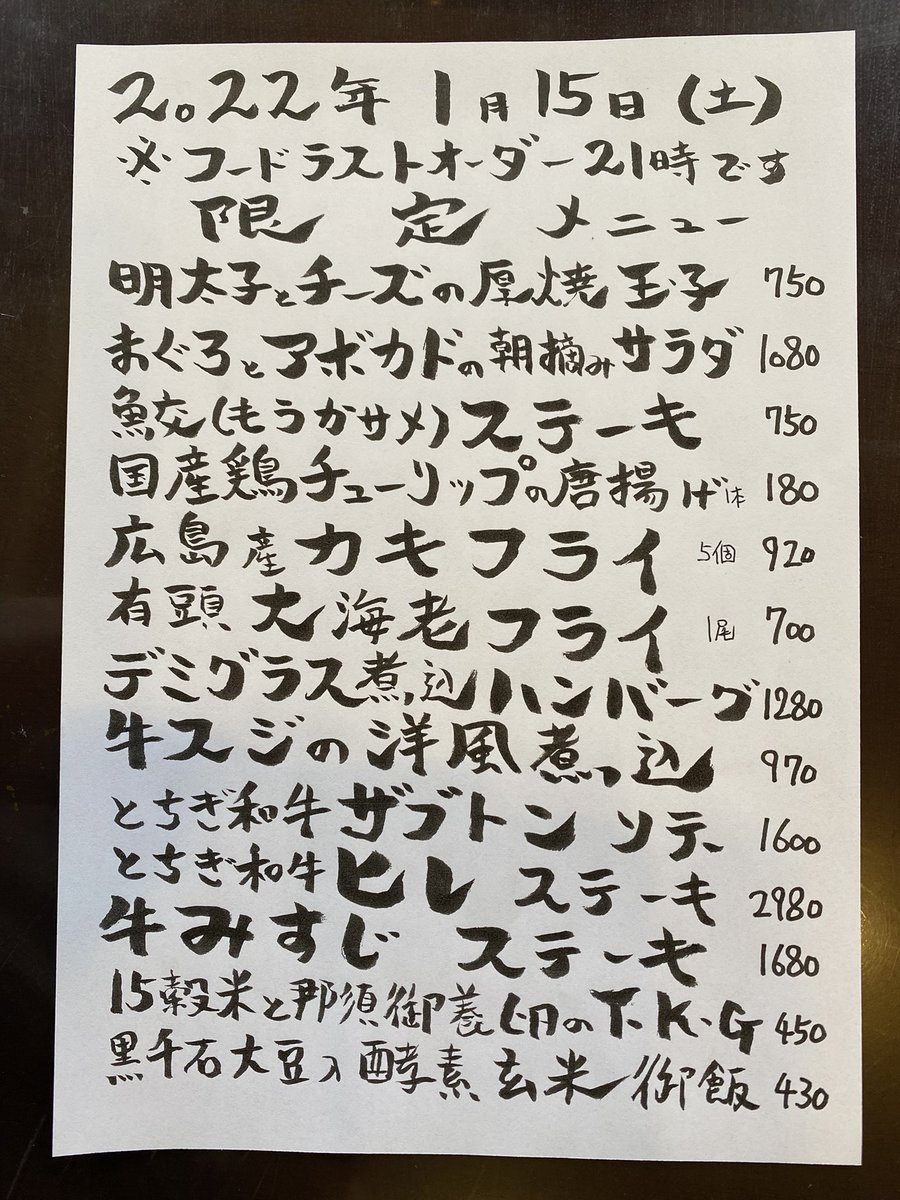 2022年 1月15日(土)
※フードラストオーダー21時です
限定メニュー
明太子とチーズの厚焼玉子 750
まぐろとアボカドの朝摘みサラダ 1080
鮫(もうかサメ)ステーキ 750
国産鶏チューリップの唐揚げ 1本 180
広島産カキフライ 5個 920
有頭大海老フライ 1尾 700
デミグラス煮込ハンバーグ 1280
牛スジの洋風煮っ込 970
とちぎ和牛ザブトンソテー 1600
とちぎ和牛ヒレステーキ 2980
牛みすじステーキ 1680
15穀米と那須御養卵のT.K.G 450
黒千石大豆入酵素玄米御飯 430